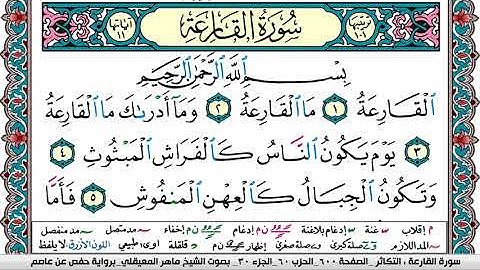 ترتيبها ١٠١ سورة القارعة آياتها ١١
بسم الله الرحمن الرحيم
ٱلۡقَارِعَةُ ١ مَا ٱلۡقَارِعَةُ ٢ وَمَآ أَدۡرَىٰكَ مَا ٱلۡقَارِعَةُ
٣ يَوۡمَ يَكُونُ ٱلنَّاسُ كَٱلۡفَرَاشِ ٱلۡمَبۡثُوثِ ٤
وَتَكُونُ ٱلۡجِبَالُ كَٱلۡعِهۡنِ ٱلۡمَنفُوشِ ٥ فَأَمَّا
م إقلاب س غنة إدغام بلاغنة إدغام إخفاء مد متصل مد منفصل
المد اللازم صلة كبرى وصلة صغرى إظهار قلقلة ا و ى طبيعي اللون الأزرق لا يلفظ
سورة القارعة ، التكاثر _الصفحة ٦٠٠_الحزب ٦٠_الجزء ٣٠ _ بصوت الشيخ ماهر المعيقلي_برواية حفص عن عاصم